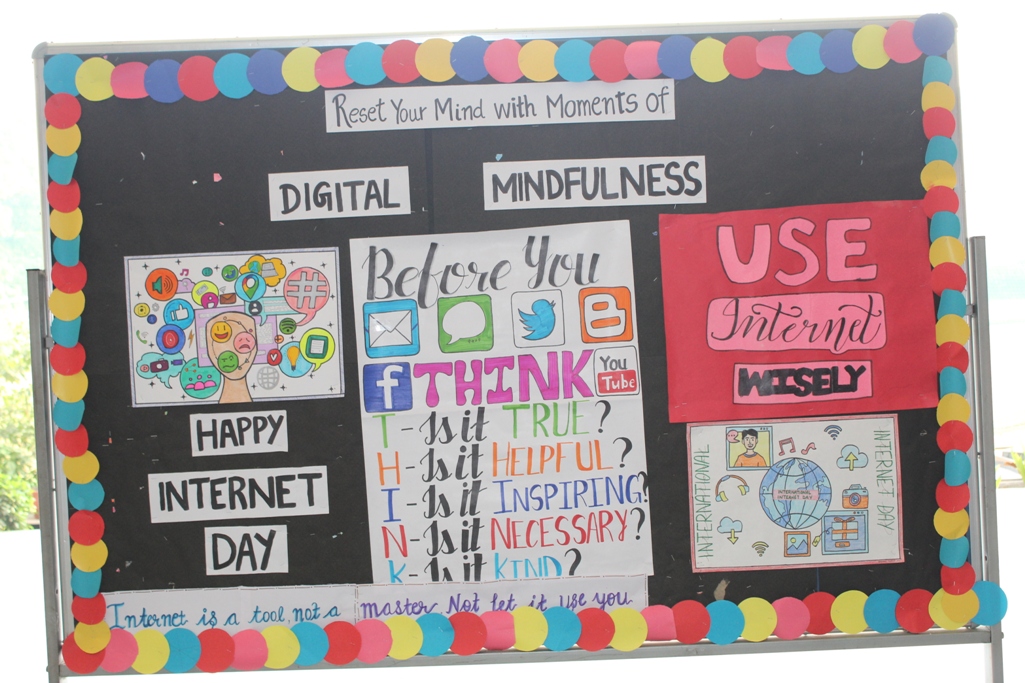 Reset Your Mind with Moments of
DIGITAL MINDFULNESS
Before You
f THINK You Tube
T - Is it TRUE?
H - Is it HELPFUL?
I - Is it INSPIRING?
N - Is it NECESSARY?
K - Is it KIND?
USE
Internet
WISELY
HAPPY
INTERNET
DAY
INTERNATIONAL
INTERNATIONAL
INTERNET DAY
INTERNET DAY
Internet is a tool, not a master Not let it use you